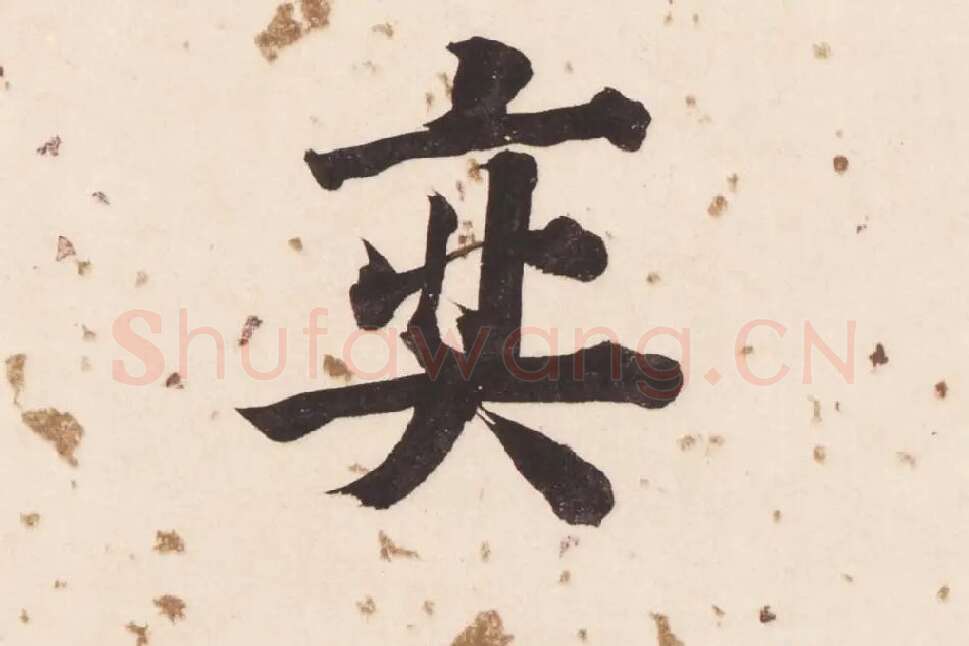 奕
Shufawang.CN